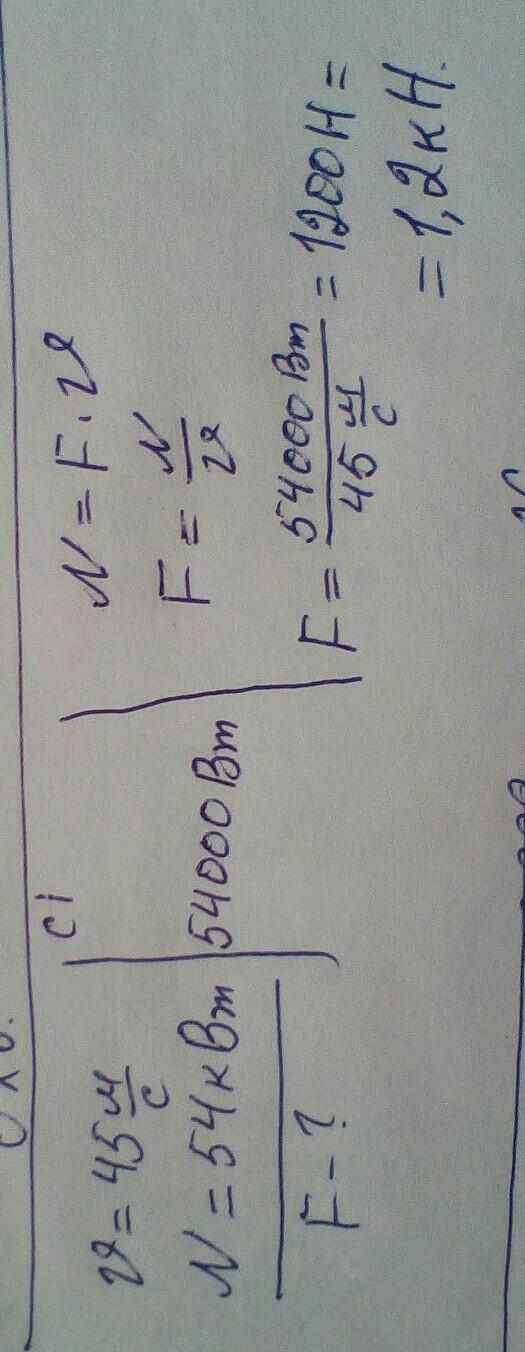 СІ
𝜗 = 45 м/с
N = 54 кВт
54000 Вт
F - ?
N = F · 𝜗
F = N/𝜗
F = 54000 Вт / 45 м/с = 1200 Н =
= 1,2 кН.